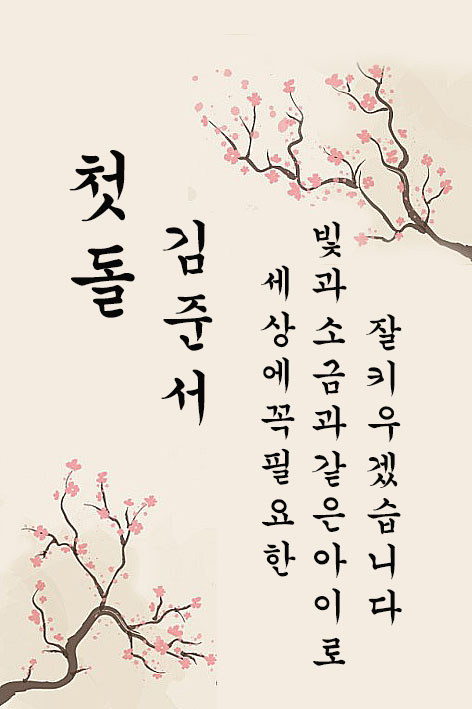 첫돌
김준서
세상에꼭필요한
빛과소금과같은아이로
잘키우겠습니다